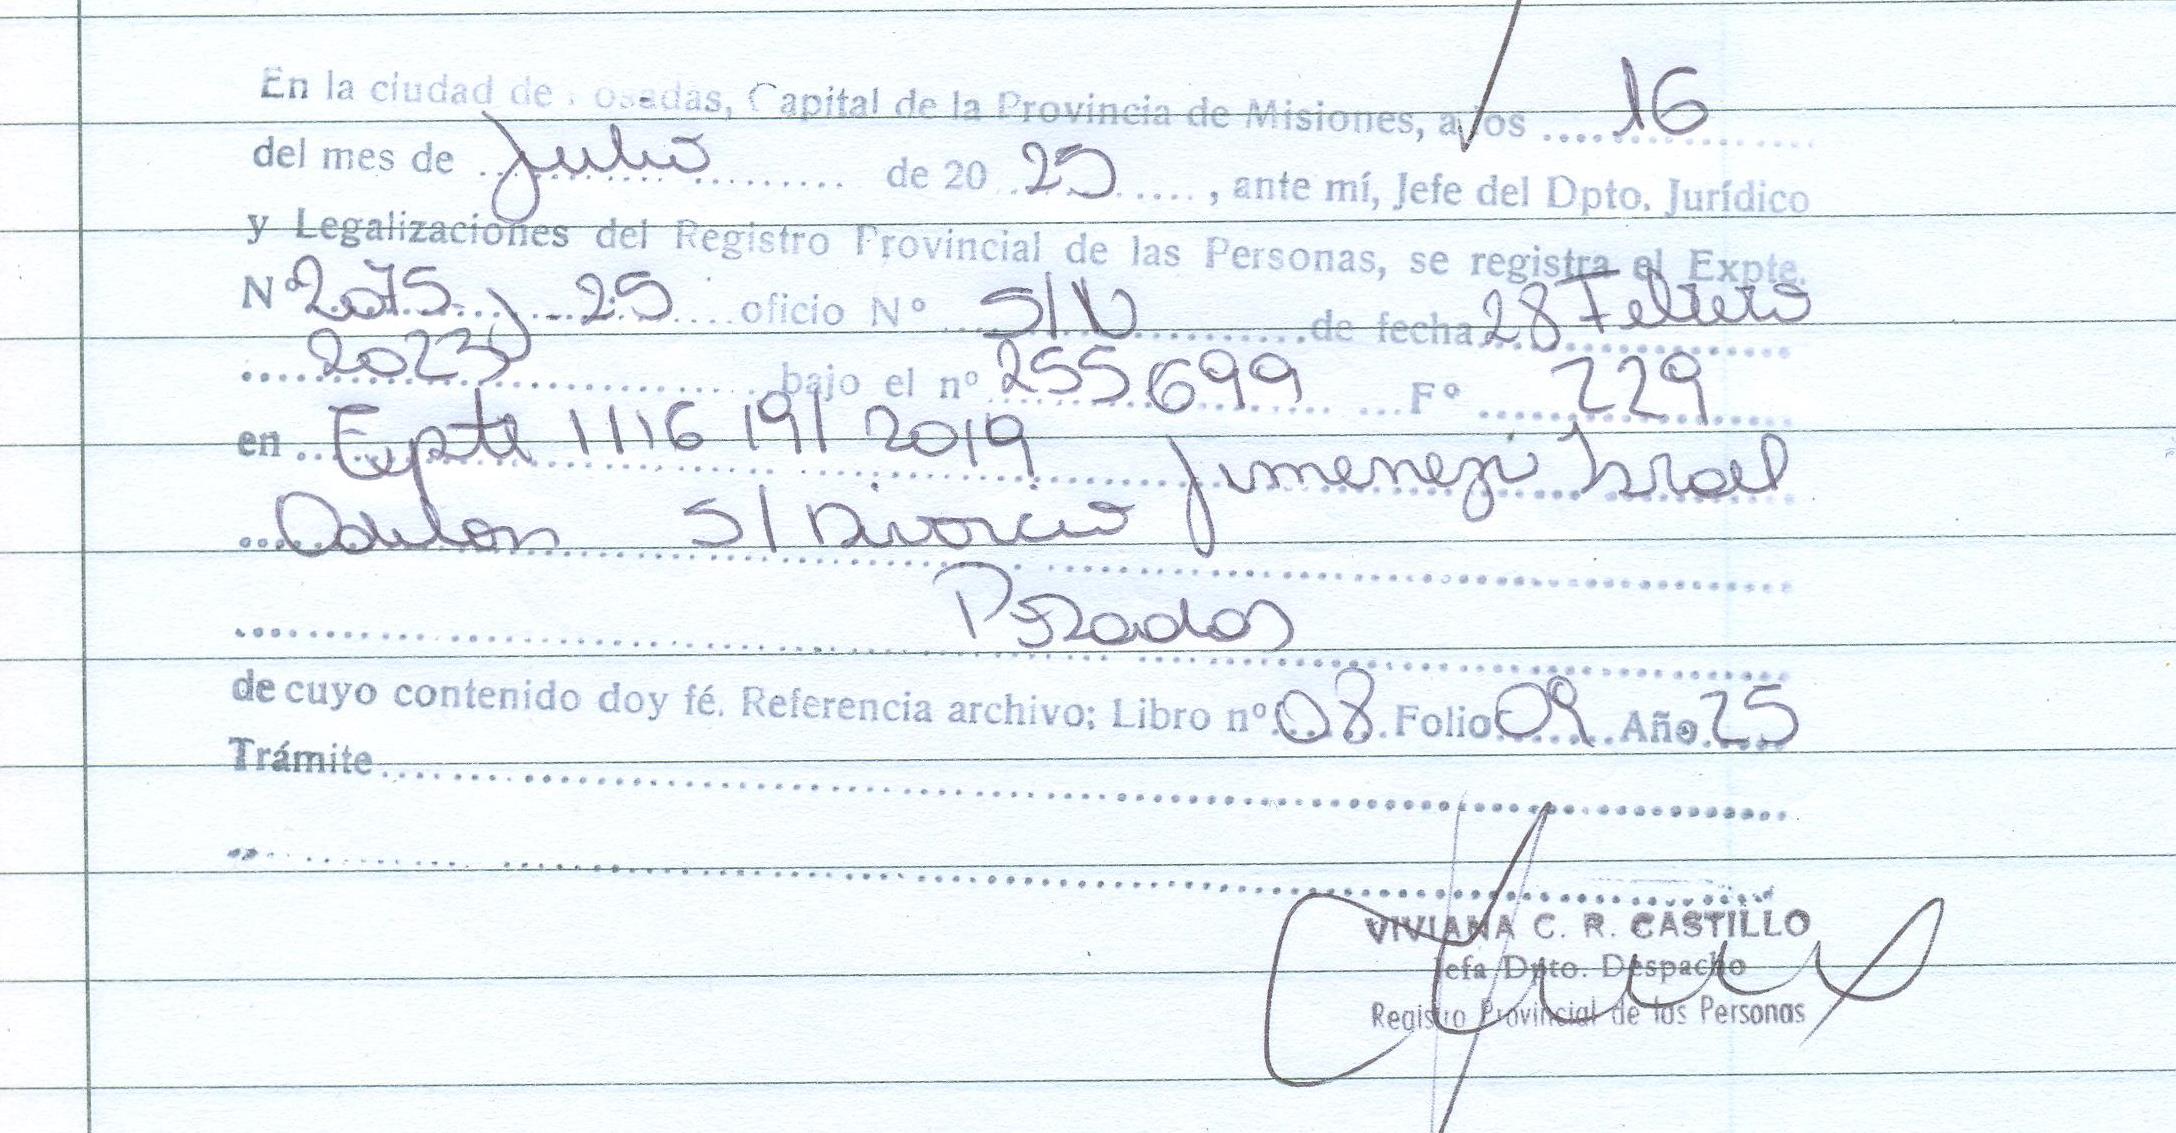 En la ciudad de Posadas, Capital de la Provincia de Misiones, a los .... 16
del mes de Julio de 20 25 , ante mí, Jefe del Dpto. Jurídico
y Legalizaciones del Registro Provincial de las Personas, se registra el Expte.
N° 2075 - 25 oficio N° S/N de fecha 28 Febrero
2023 bajo el n° 255699 F° 229
en Expte 111619/2019 Jimenez Israel
Odulon S/Divorcio
Posadas
de cuyo contenido doy fé. Referencia archivo: Libro n° 08 Folio 09 Año 25
Trámite
VIVIANA C. R. CASTILLO
Jefa Dpto. Despacho
Registro Provincial de las Personas